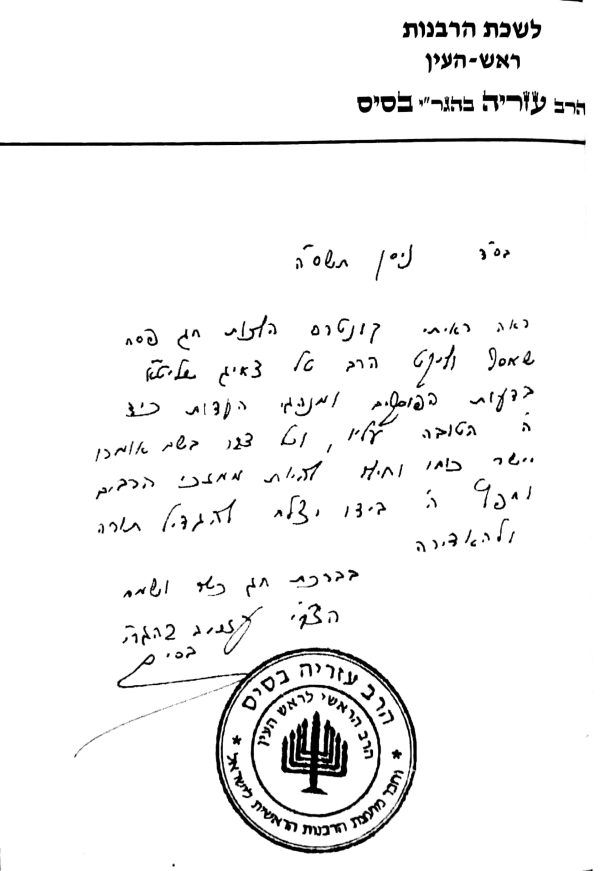 לשכת הרבנות
ראש-העין
הרב עזריה בהגר״י בסיס
בס״ד ניסן תשס״ה
ראה ראיתי קונטרס הלכות חג פסח
שאסף וליקט הרב טל צאיג שליט״א
בדעות הפוסקים ומנהגי העדות כיד
ה' הטובה עליו, וכל דבר בשם אומרו
יישר כוחו וחילו להיות ממזכי הרבים
וחפץ ה' בידו יצלח להגדיל תורה
ולהאדירה
בברכת חג כשר ושמח
הצב״י עזריה בהגר״י
בסיס
הרב עזריה בסיס
הרב הראשי לראש העין
* וחבר מועצת הרבנות הראשית לישראל *